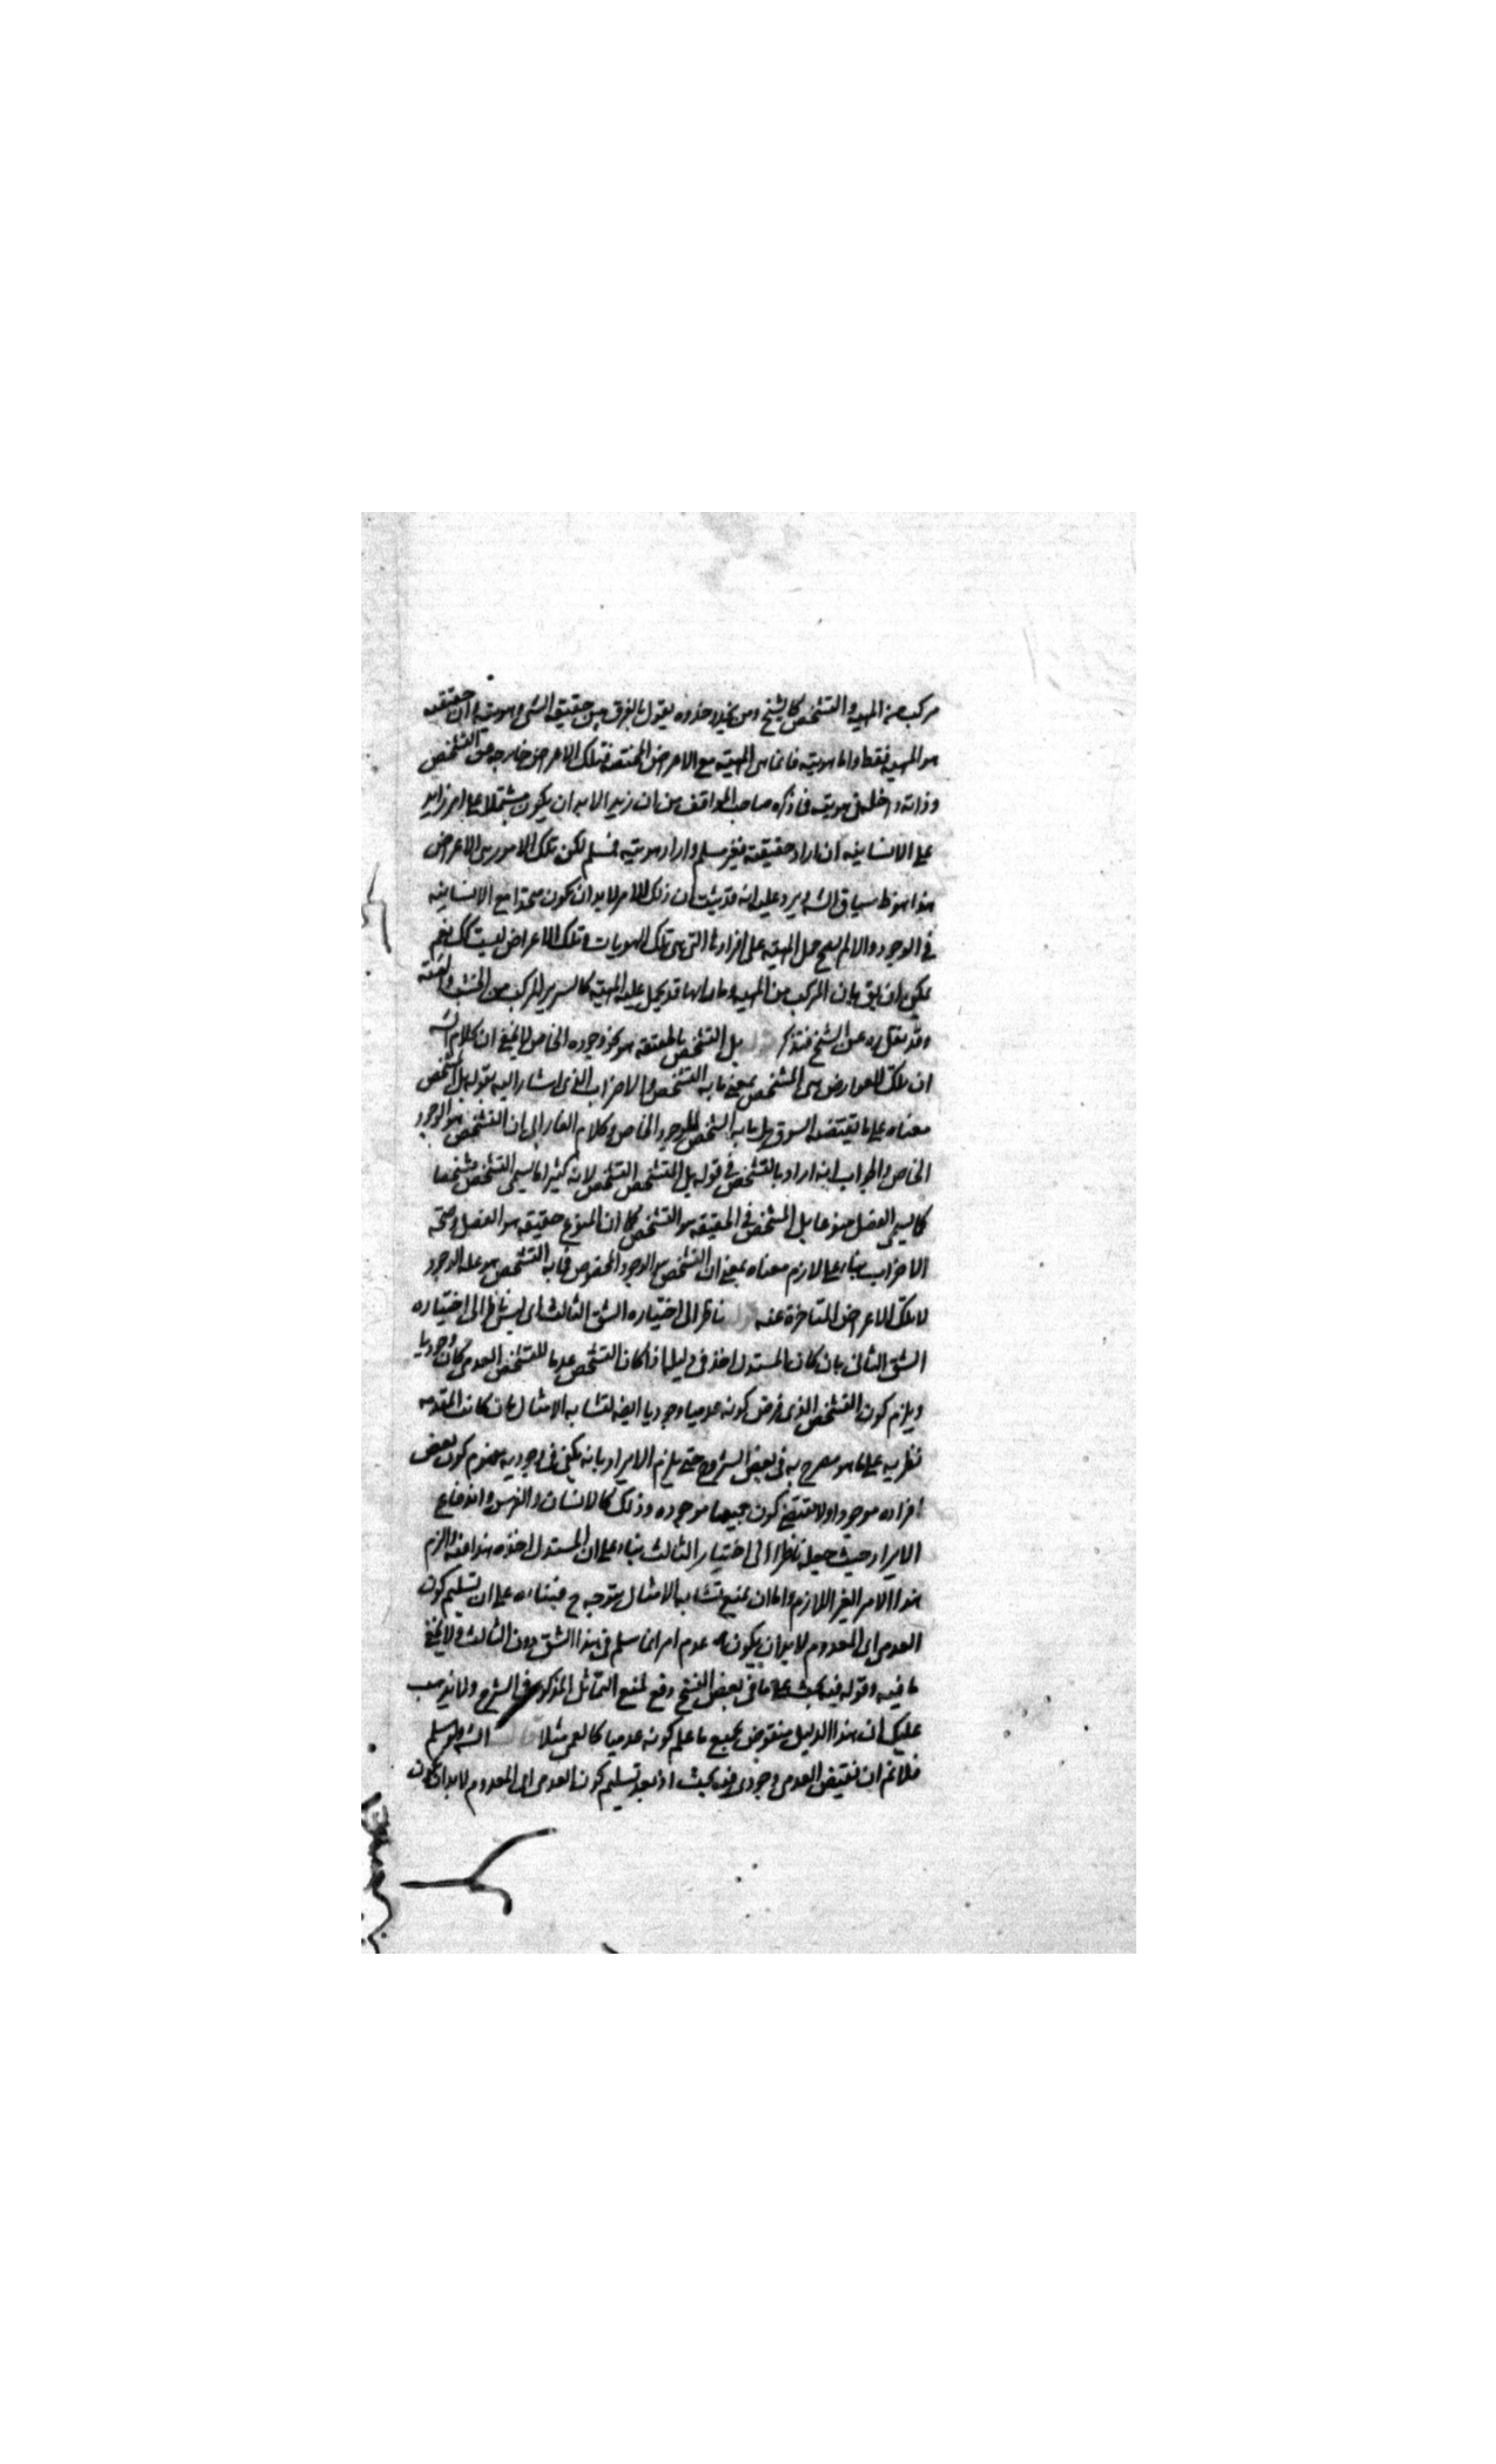 مركب من المهية والتشخص كالشيخ ومن يحذو حذوه يقول بالفرق بين حقيقة الشئ وهويته فان حقيقته
هو المهية فقط واما هويته فانما هى المهية مع الاعراض المختصة فتلك الاعراض خارجه عن الشخص
وذاته داخله فى هويته فما ذكره صاحب المواقف من ان زيد الابد ان يكون مشتملا على امر زايد
على الانسانية ان اراد حقيقته فغير مسلم وان اراد هويته فمسلم لكن تلك الامور هى الاعراض
هذا هو سياق الشه ويرد عليه انه قد يثبت ان ذلك الامر لا بد ان يكون متحدا مع الانسانية
فى الوجود والا لم يصح حمل المهية على افرادها التى هى تلك الهويات وتلك الاعراض ليست كك نعم
يمكن ان يق بان المركب من المهية وما قد يحمل عليه المهية كالسرير المركب من الخشب
وقد نقل ره عن الشيخ فتذكر بل التشخص بالحقيقة هو نحو وجوده الخاص لا يخفى ان كلام الشه
ان تلك العوارض هى المشخص بمعنى ما به التشخص والاضراب الذى اشار اليه بقوله بل التشخص
معناه على ما يقتضيه السوق بل ما به التشخص الوجود الخاص وكلام الفارابى ان التشخص هو الوجود
الخاص والجواب انه اراد بالتشخص فى قوله بل التشخص لانه كثيرا ما يسمى التشخص مشخصا
كما يسمى الفصل منوعا بل المشخص فى الحقيقة هو التشخص كما ان المنوع حقيقه هو الفصل وصحة
الاضراب بناء على لازم معناه بمعنى ان التشخص هو الوجود المخصوص فما به التشخص هو علة الوجود
لا تلك الاعراض المتاخرة عنه ناظر الى اختياره الشق الثالث اى ليس ناظر الى اختياره
الشق الثانى بان كان المستدل اخذ فى دليله اذا كان التشخص عدما للتشخص العدمى كان وجوديا
ويلزم كون التشخص الذى فرض كونه عدميا وجوديا ايضا لتشابه الامثال كانت المقدمه
نظريه على ما هو مصرح به فى بعض الشروح حتى يلزم الايراد بانه يكفى فى وجودية مفهوم كون بعض
افراده موجودا ولا يقتضى كون جميعها موجوده وذلك كالانسان والفرس واندفاع
الايراد حيث جعله ناظرا الى اختيار الثالث بناء على ان المستدل اخذه هذا
هذا الامر الغير اللازم واما ان يمنع تشابه الامثال يتوجه ح فبناءه على ان تسليم كون
العدمى اى المعدوم لا بد ان يكون عدم امر انما سلم فى هذا الشق دون الثالث ولا يخفى
ما فيه وقوله فيه بحث على ما فى بعض النسخ دفع لمنع التماثل المذكور فى الشرح ولا يذهب
عليك ان هذا الدليل منقوض بجميع ما علم كونه عدميا كالعمى مثلا قال الشه ولو سلم
فلا نم ان نقيض العدمى وجودى فيه بحث اذ بعد تسليم كون العدمى اى المعدوم لا بد ان يكون